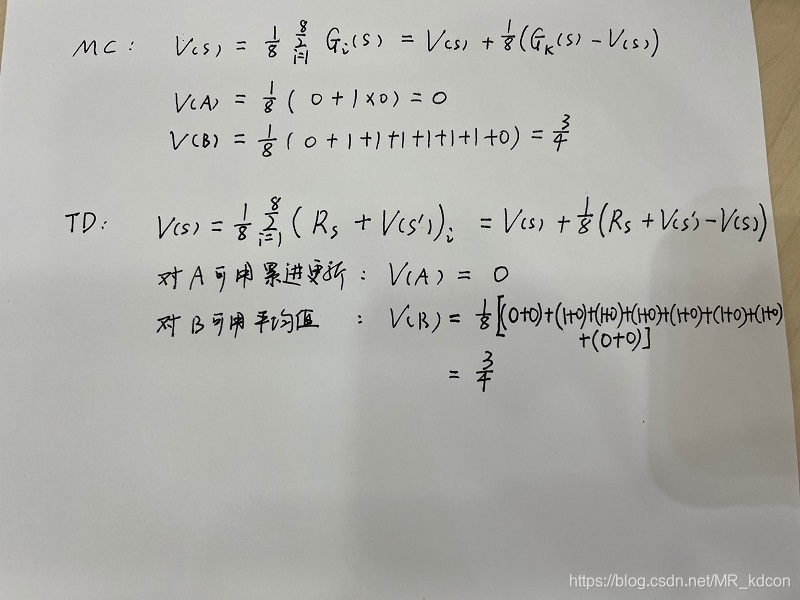 MC: V(s) = 1/8 8Σi=1 Gi(s) = V(s) + 1/8(Gk(s) - V(s))
V(A) = 1/8 ( 0 + 1×0) = 0
V(B) = 1/8 ( 0+1+1+1+1+1+1+0) = 3/4
TD: V(s) = 1/8 8Σi=1 ( Rs + V(s'))i = V(s) + 1/8(Rs + V(s') - V(s))
对A可用累进更新: V(A) = 0
对B可用平均值: V(B) = 1/8[(0+0)+(1+0)+(1+0)+(1+0)+(1+0)+(1+0)+(1+0)
+(0+0)]
= 3/4
https://blog.csdn.net/MR_kdcon